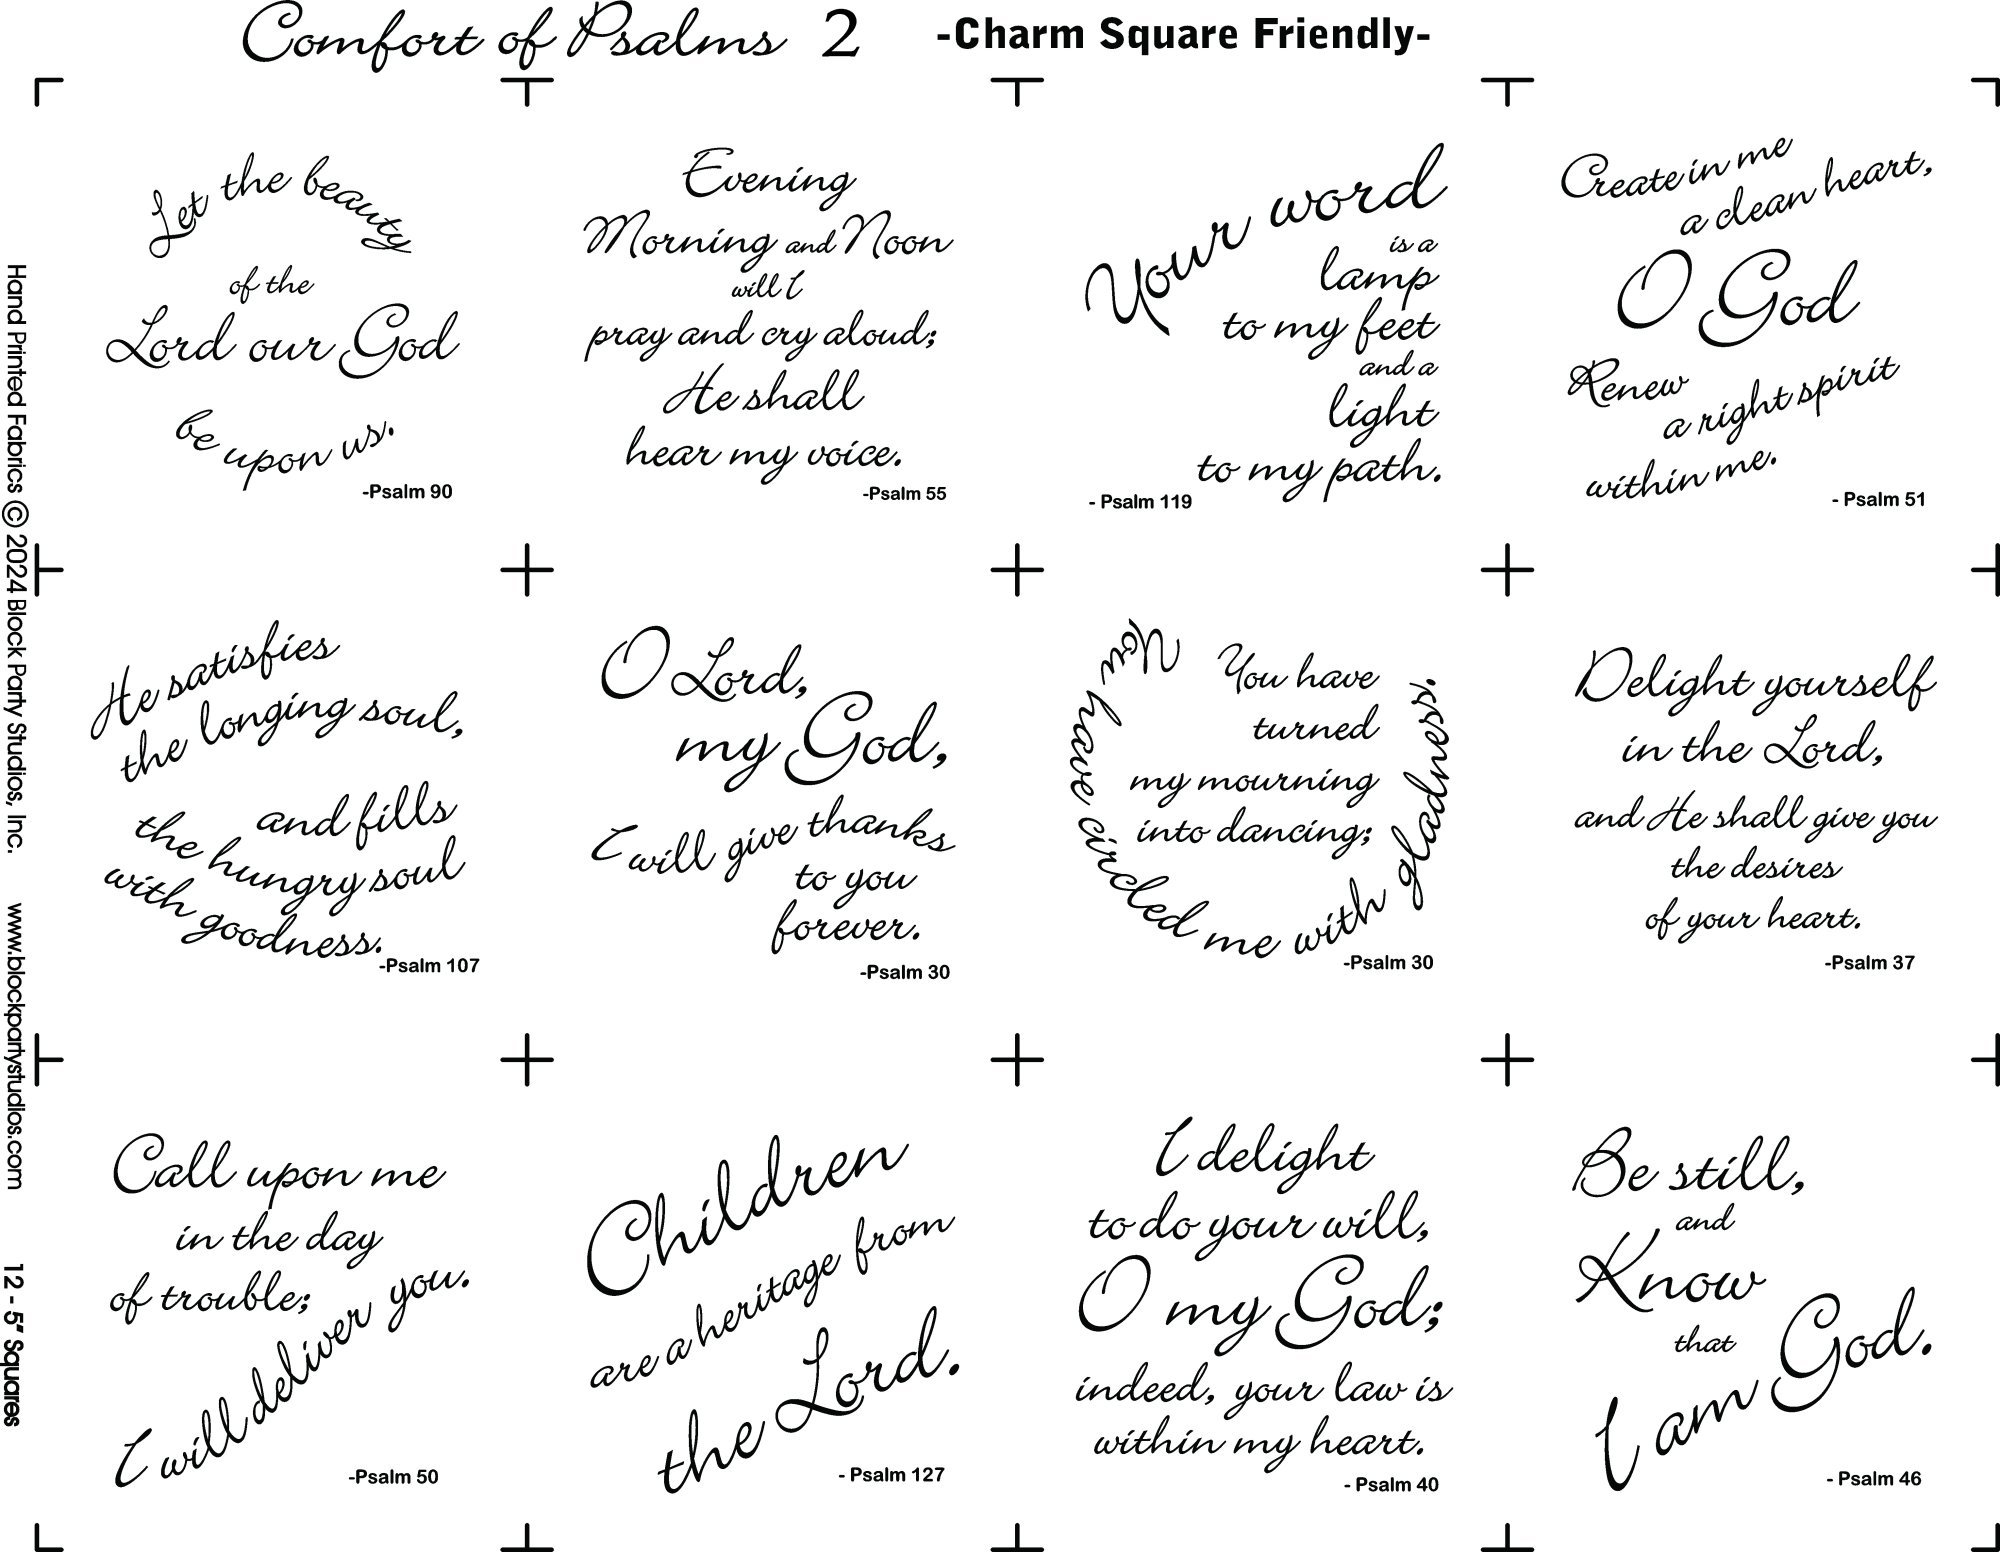 Comfort of Psalms 2
-Charm Square Friendly-
Let the beauty
of the
Lord our God
be upon us.
-Psalm 90
Evening
Morning and Noon
will I
pray and cry aloud;
He shall
hear my voice.
-Psalm 55
Your word
is a
lamp
to my feet
and a
light
to my path.
- Psalm 119
Create in me
a clean heart,
O God
Renew
a right spirit
within me.
- Psalm 51
He satisfies
the longing soul,
and fills
the hungry soul
with goodness.
-Psalm 107
O Lord,
my God,
I will give thanks
to you
forever.
-Psalm 30
You have
turned
my mourning
into dancing;
You have circled me with gladness.
-Psalm 30
Delight yourself
in the Lord,
and He shall give you
the desires
of your heart.
-Psalm 37
Call upon me
in the day
of trouble;
I will deliver you.
-Psalm 50
Children
are a heritage from
the Lord.
- Psalm 127
I delight
to do your will,
O my God;
indeed, your law is
within my heart.
- Psalm 40
Be still,
and
Know
that
I am God.
- Psalm 46
Hand Printed Fabrics © 2024 Block Party Studios, Inc. www.blockpartystudios.com 12 - 5" Squares